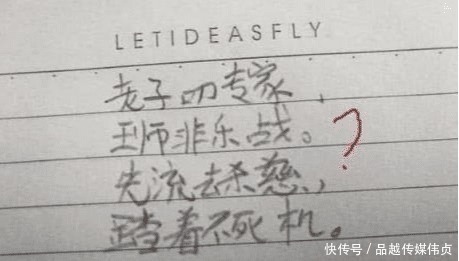 LETIDEASFLY
老子叨专家，
王师非乐战。
先流去杀慈，
着不死机。
？
快传号／品越传媒伟贞